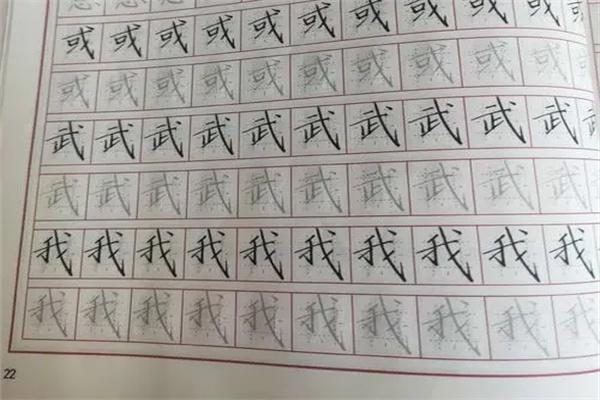 或或或或或或或或或或或
或或或或或或或或或或或
武武武武武武武武武武武
武武武武武武武武武武武
我我我我我我我我我我
我我我我我我我我我我
22